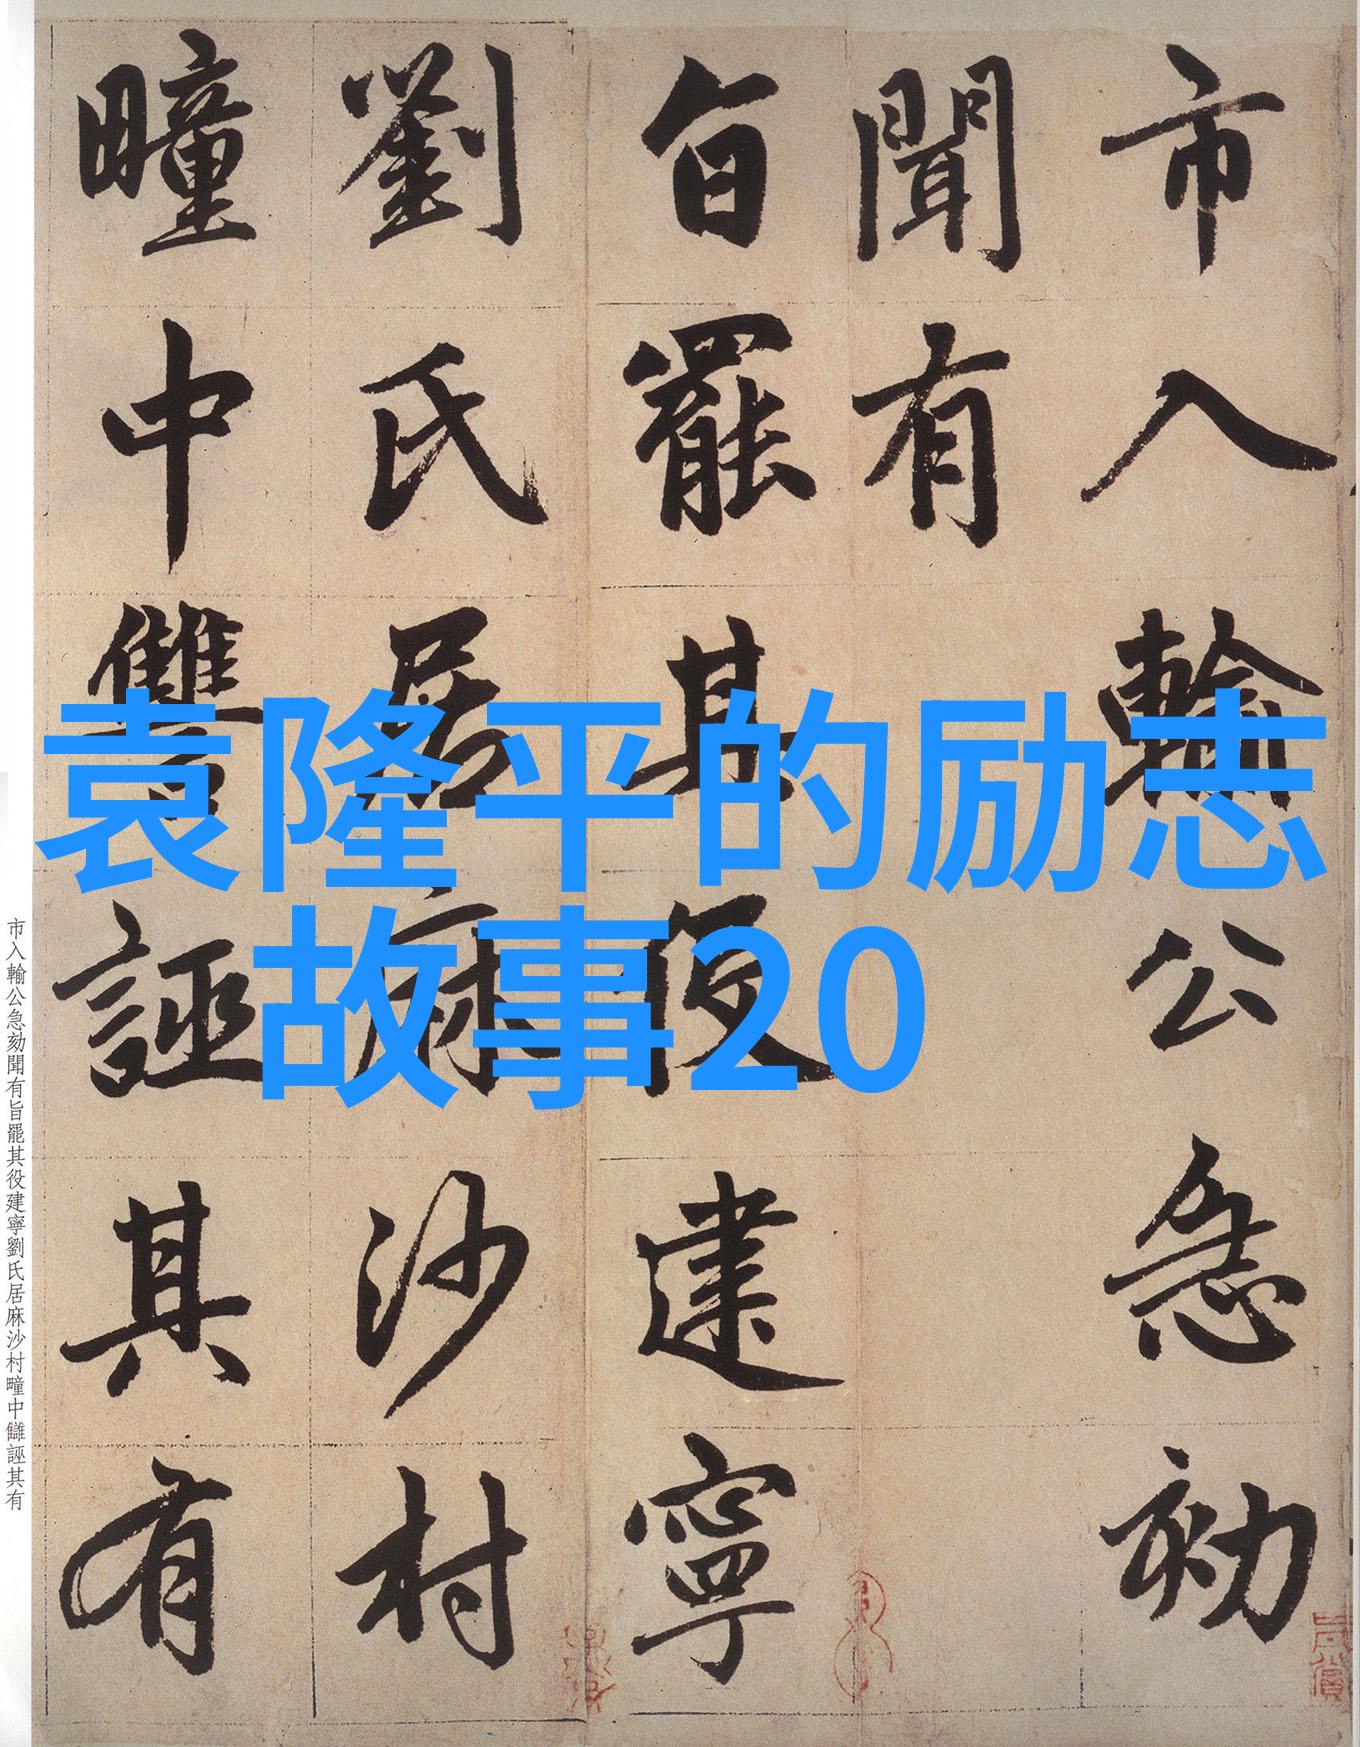 袁隆平的励志
故事20
市入輸公急刻
聞有
旨罷其役建寧
劉氏居麻沙村
疃中讎誣其有
市入輸公急刻聞有旨罷其役建寧劉氏居麻沙村疃中讎誣其有